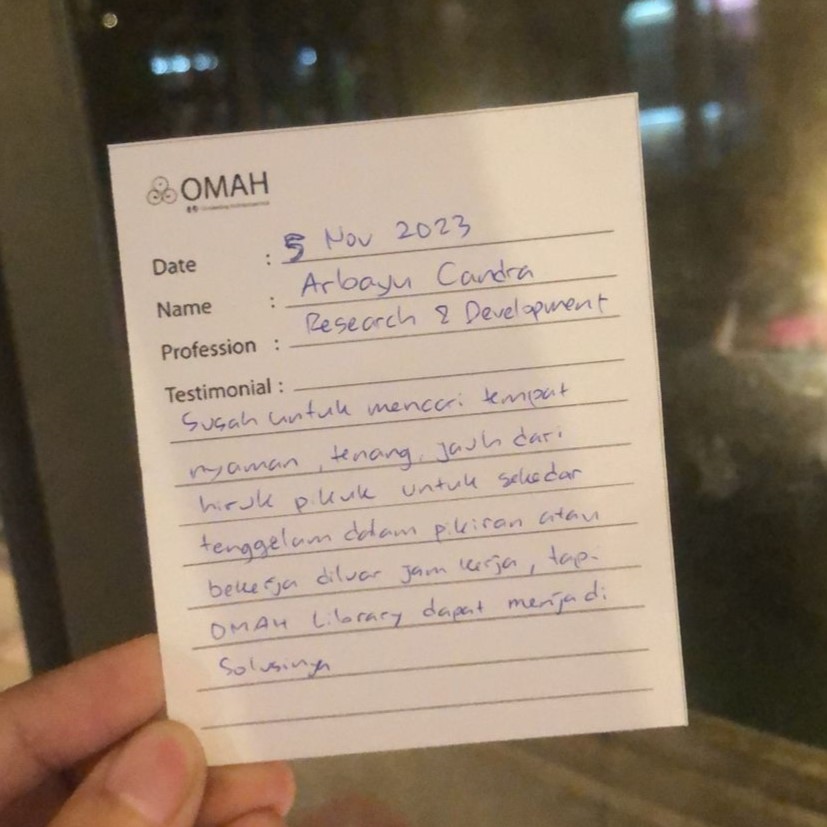 OMAH
Date : 5 Nov 2023
Name : Arbayu Candra
Profession : Research & Development
Testimonial :
Susah untuk mencari tempat
nyaman, tenang, jauh dari
hiruk pikuk untuk sekedar
tenggelam dalam pikiran atau
bekerja diluar jam kerja, tapi
OMAH Library dapat menjadi
Solusinya